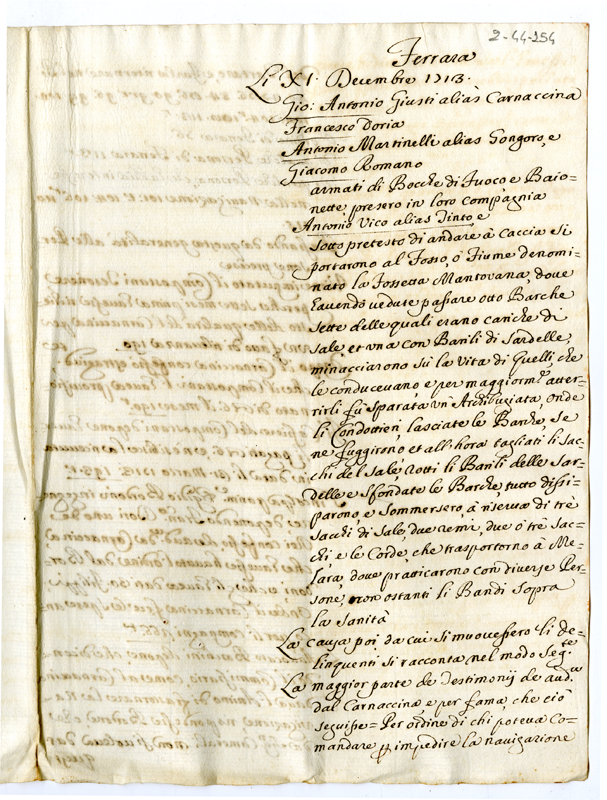 2-44-254
Ferrara
Li XI. Decembre 1713.
Gio: Antonio Giusti alias Carnaccina
Francesco Doria
Antonio Martinelli alias Gongoro, e
Giacomo Romano
armati di Bocche di fuoco e Baio=
nette presero in loro compagnia
Antonio Vico alias Tinto e
sotto pretesto di andare à Caccia si
portarono al Fosso, ò Fiume denomi=
nato la Fossetta Mantovana, dove
havendo vedute passare otto Barche
sette delle quali erano cariche di
sale et una con Barili di Sardelle,
minacciarono sù la vita di quelli, che
le conducevano, e per maggiorm.te atter=
rirli fù sparata un'Archibugiata, onde
li Condottieri, lasciate le Barche, se
ne fuggirono et all'hora tagliati li Sac=
chi del Sale, rotti li Barili delle Sar=
delle e sfondate le Barche, tutto dissi=
parono, e sommersero, à riserva di trè
sacchi di Sale, due remi, due ò trè Sac=
chi e le Corde, che trasportorno à Me=
lara, dove pratticarono con diverse Per=
sone, non ostanti li Bandi sopra
la sanità
La causa poi da cui si muovessero li de=
linquenti si racconta nel modo seg.te
La maggior parte de Testimonij de aud.u
dal Carnaccina, e per fama, che ciò
seguisse= Per ordine di chi poteva Co=
mandare p impedire la navigazione